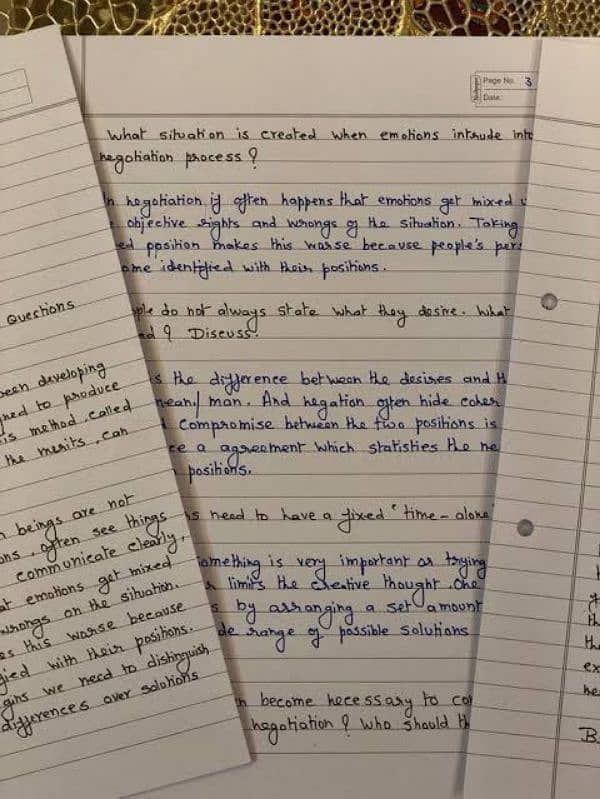 Page No. 3
Date:
What situation is created when emotions intrude
negotiation process ?
negotiation if often happens that emotions get mixed
objective rights and wrongs of the situation. Taking
position makes this worse because people's
identified with their positions.
do not always state what they desire. What
? Discuss.
the difference between the desires and
man. And negation often hide
compromise between the two positions is
a agreement which statisties the
positions.
need to have a fixed "time-alone
something is very important or trying
limits the creative thought. One
by arranging a set amount
range of possible solutions
become necessary to
negotiation ? Who should
Questions
been developing
to produce
is method, called
the merits, can
beings are not
often see things
communicate clearly,
emotions get mixed
wrongs on the situation.
this worse because
with their positions.
we need to distinguish
differences over solutions
B